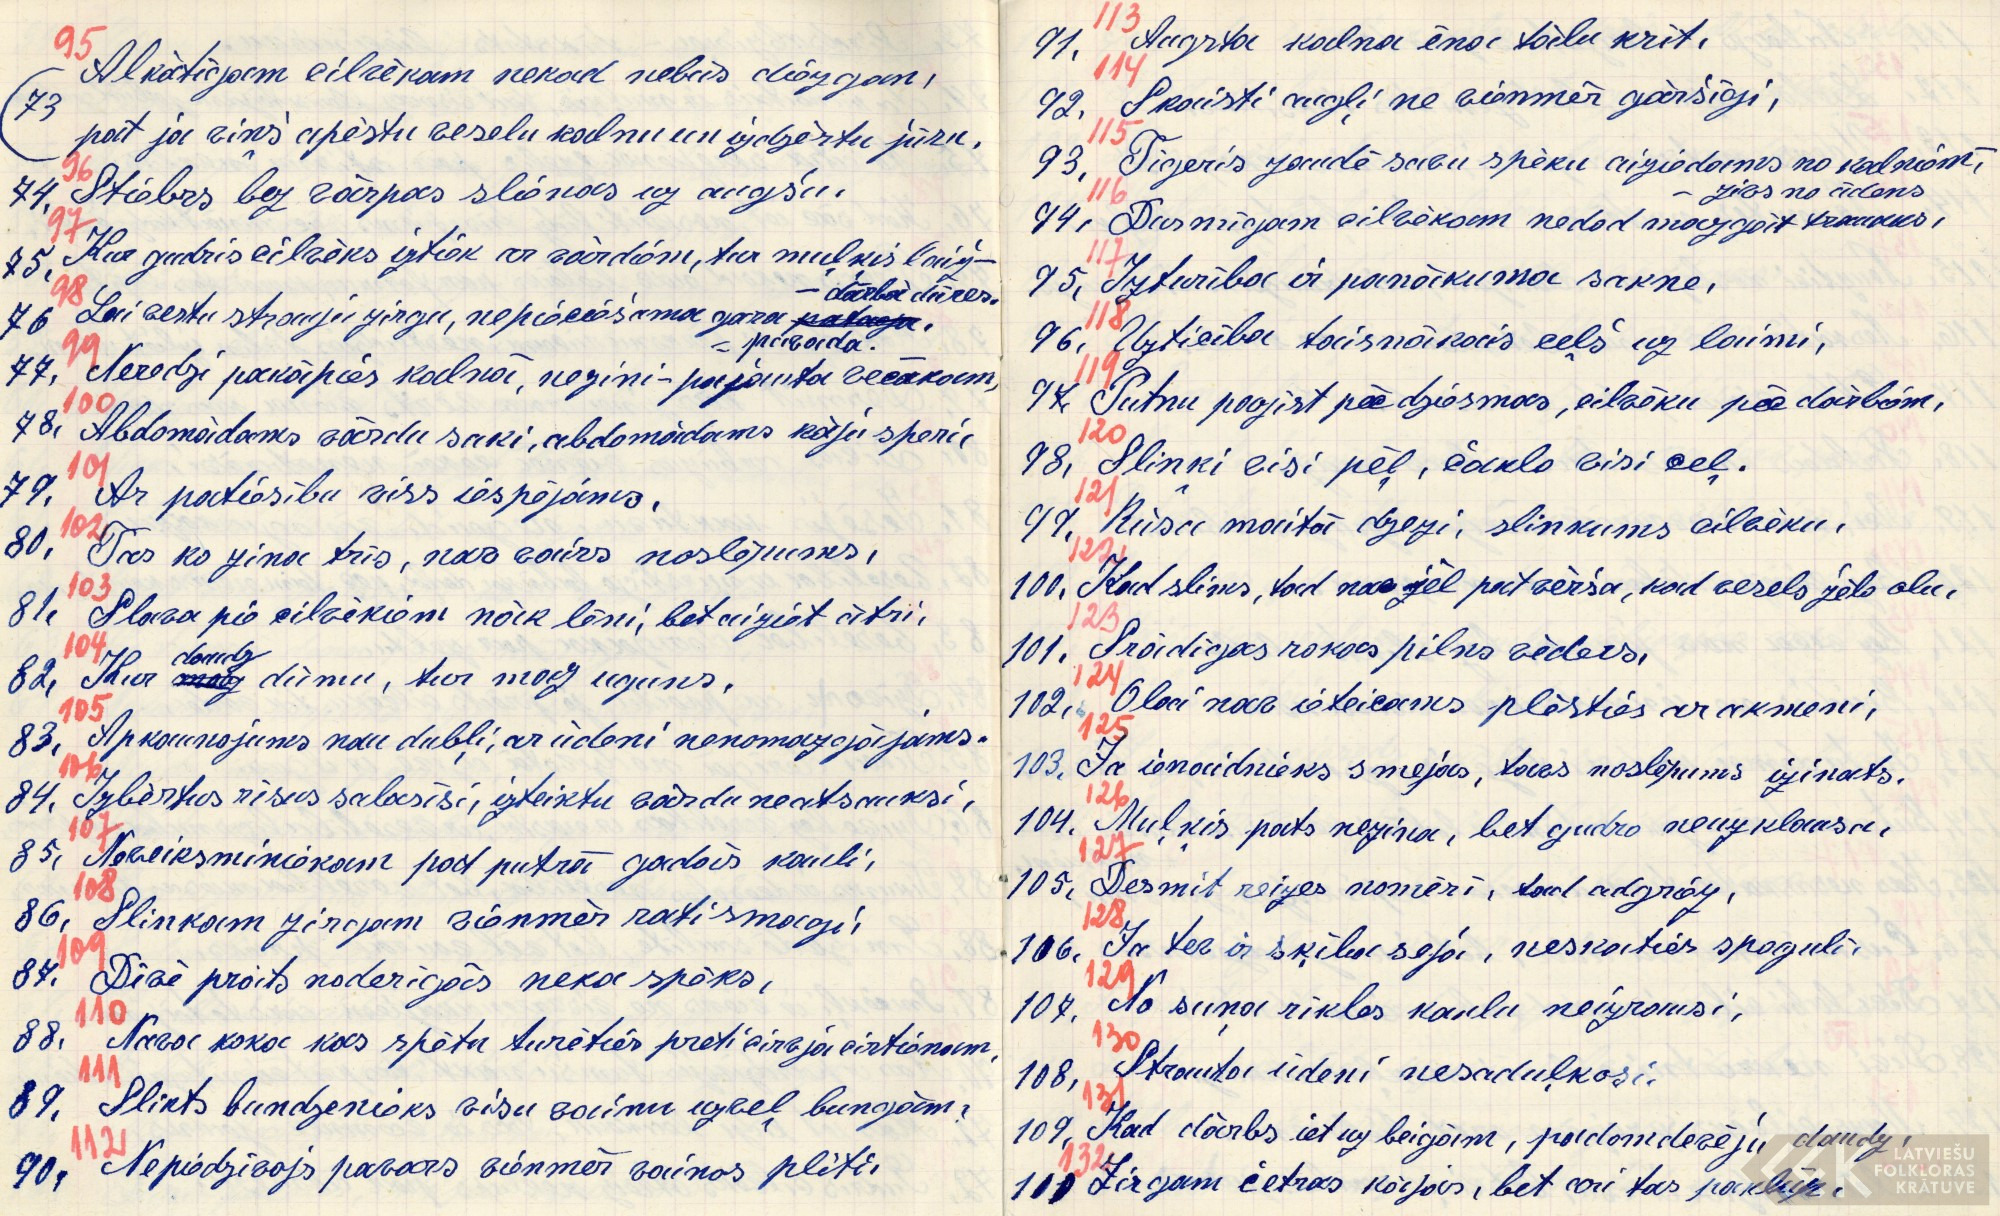 95
73 Alkātīgam cilvēkam nekad nebūs diezgan,
pat ja viņš apēstu veselu kalnu un izdzertu jūru.
96
74. Stiebrs bez vārpas slienas uz augšu.
97
75. Kur gudris cilvēks iztiek ar vārdiem, tur muļķis laiž –
– dārbā dūres.
98
76 Lai vestu strauju zirgu, nepieciešama gara pataga.
= pavada.
99
77. Neredzi pakāpies kalnā, nezini – pajauta vecākam,
100
78. Abdomādams vārdu saki, abdomādams kāju speri.
101
79. Ar patiesību viss iespējams.
102
80. Tas ko zina trīs, nav vairs noslēpums.
103
81. Slava pie cilvēkiem nāk lēni, bet aiziet ātri.
104
daudz
82. Kur maz dūmu, tur maz uguns.
105
83. Apkaunojums nau dubļi, ar ūdeni nenomazgājams.
106
84. Izbērtus rīsus salasīsi, izteiktu vārdu neatsauksi,
107
85. Neveiksminiekam pat putrā gadās kauli,
108
86. Slinkam zirgam vienmēr rati smagi,
109
87. Dižē prāts noderīgās neka spēks,
110
88. Nava koka kas spētu turēties preti cirvja cirtienam,
111
89. Slikts bundzenieks visu vainu uzveļ bungām,
112
90. Nepiedzīvojs pavars vienmēr vainos plīti.
113
91. Augsta kalna ēna tālu krīt.
114
92. Skaisti augļi ne vienmēr gāršīgi,
115
93. Tīgeris zaudē savu spēku aiziedams no kalniem,
– zivs no ūdens
116
94. Dusmīgam cilvēkam nedod mazgāt traukus,
117
95. Izturība ir panākuma sakne,
118
96. Uzticība taisnākais ceļš uz laimi,
119
97. Putnu pazīst pēc dziesmas, cilvēku pēc dārbiem,
120
98. Sliņķi visi peļ, čaklo visi ceļ.
121
99. Rūsa maitā dzezi, slinkums cilvēku,
122
100. Kad slims, tad nav žēl pat vērša, kad vesels žēlo olu,
123
101. Srādīgas rokas pilns vēders,
124
102. Olai nav ieteicams plēsties ar akmeni,
125
103. Ja ienaidnieks smejas, tavs noslēpums izinats.
126
104. Muļķis pats nezina, bet gudro neuzklausa,
127
105. Desmit reizes nomēri, tad adgriez,
128
106. Ja tev ir šķība seja, neskaties spogulī.
129
107. No suņa rīkles kaulu neizrausi,
130
108. Strauta ūdeni nesaduļkosi.
131
109. Kad dārbs iet uz beigām, padomdevēju daudz,
132
110 Zirgam četras kājas, bet ari tas paklūp.
LATVIEŠU
FOLKLORAS
KRĀTUVE